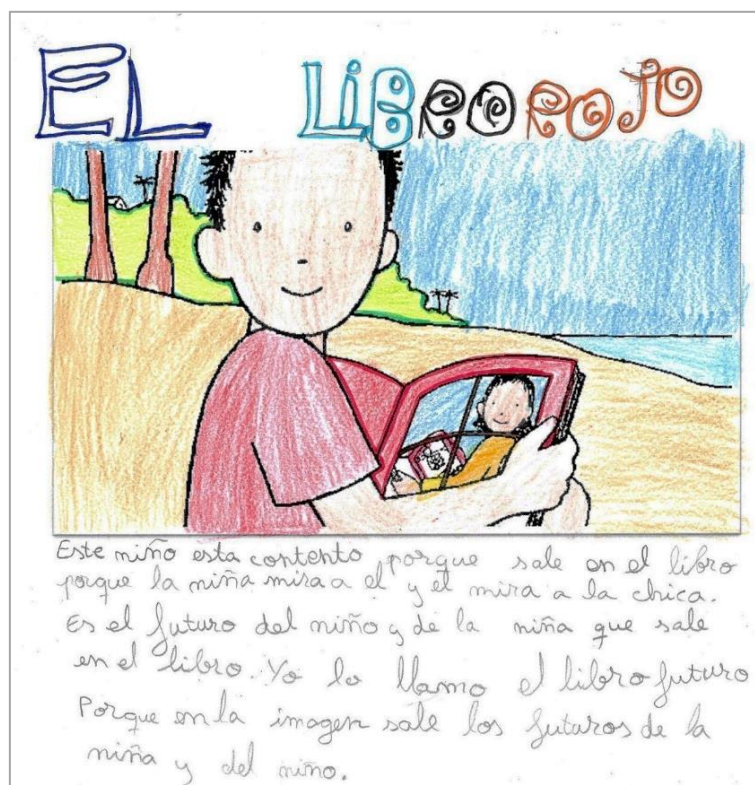 EL LIBRO ROJO
Este niño esta contento porque sale en el libro
porque la niña mira a el y el mira a la chica.
Es el futuro del niño y de la niña que sale
en el libro. Yo lo llamo el libro futuro
Porque en la imagen sale los futuros de la
niña y del niño.